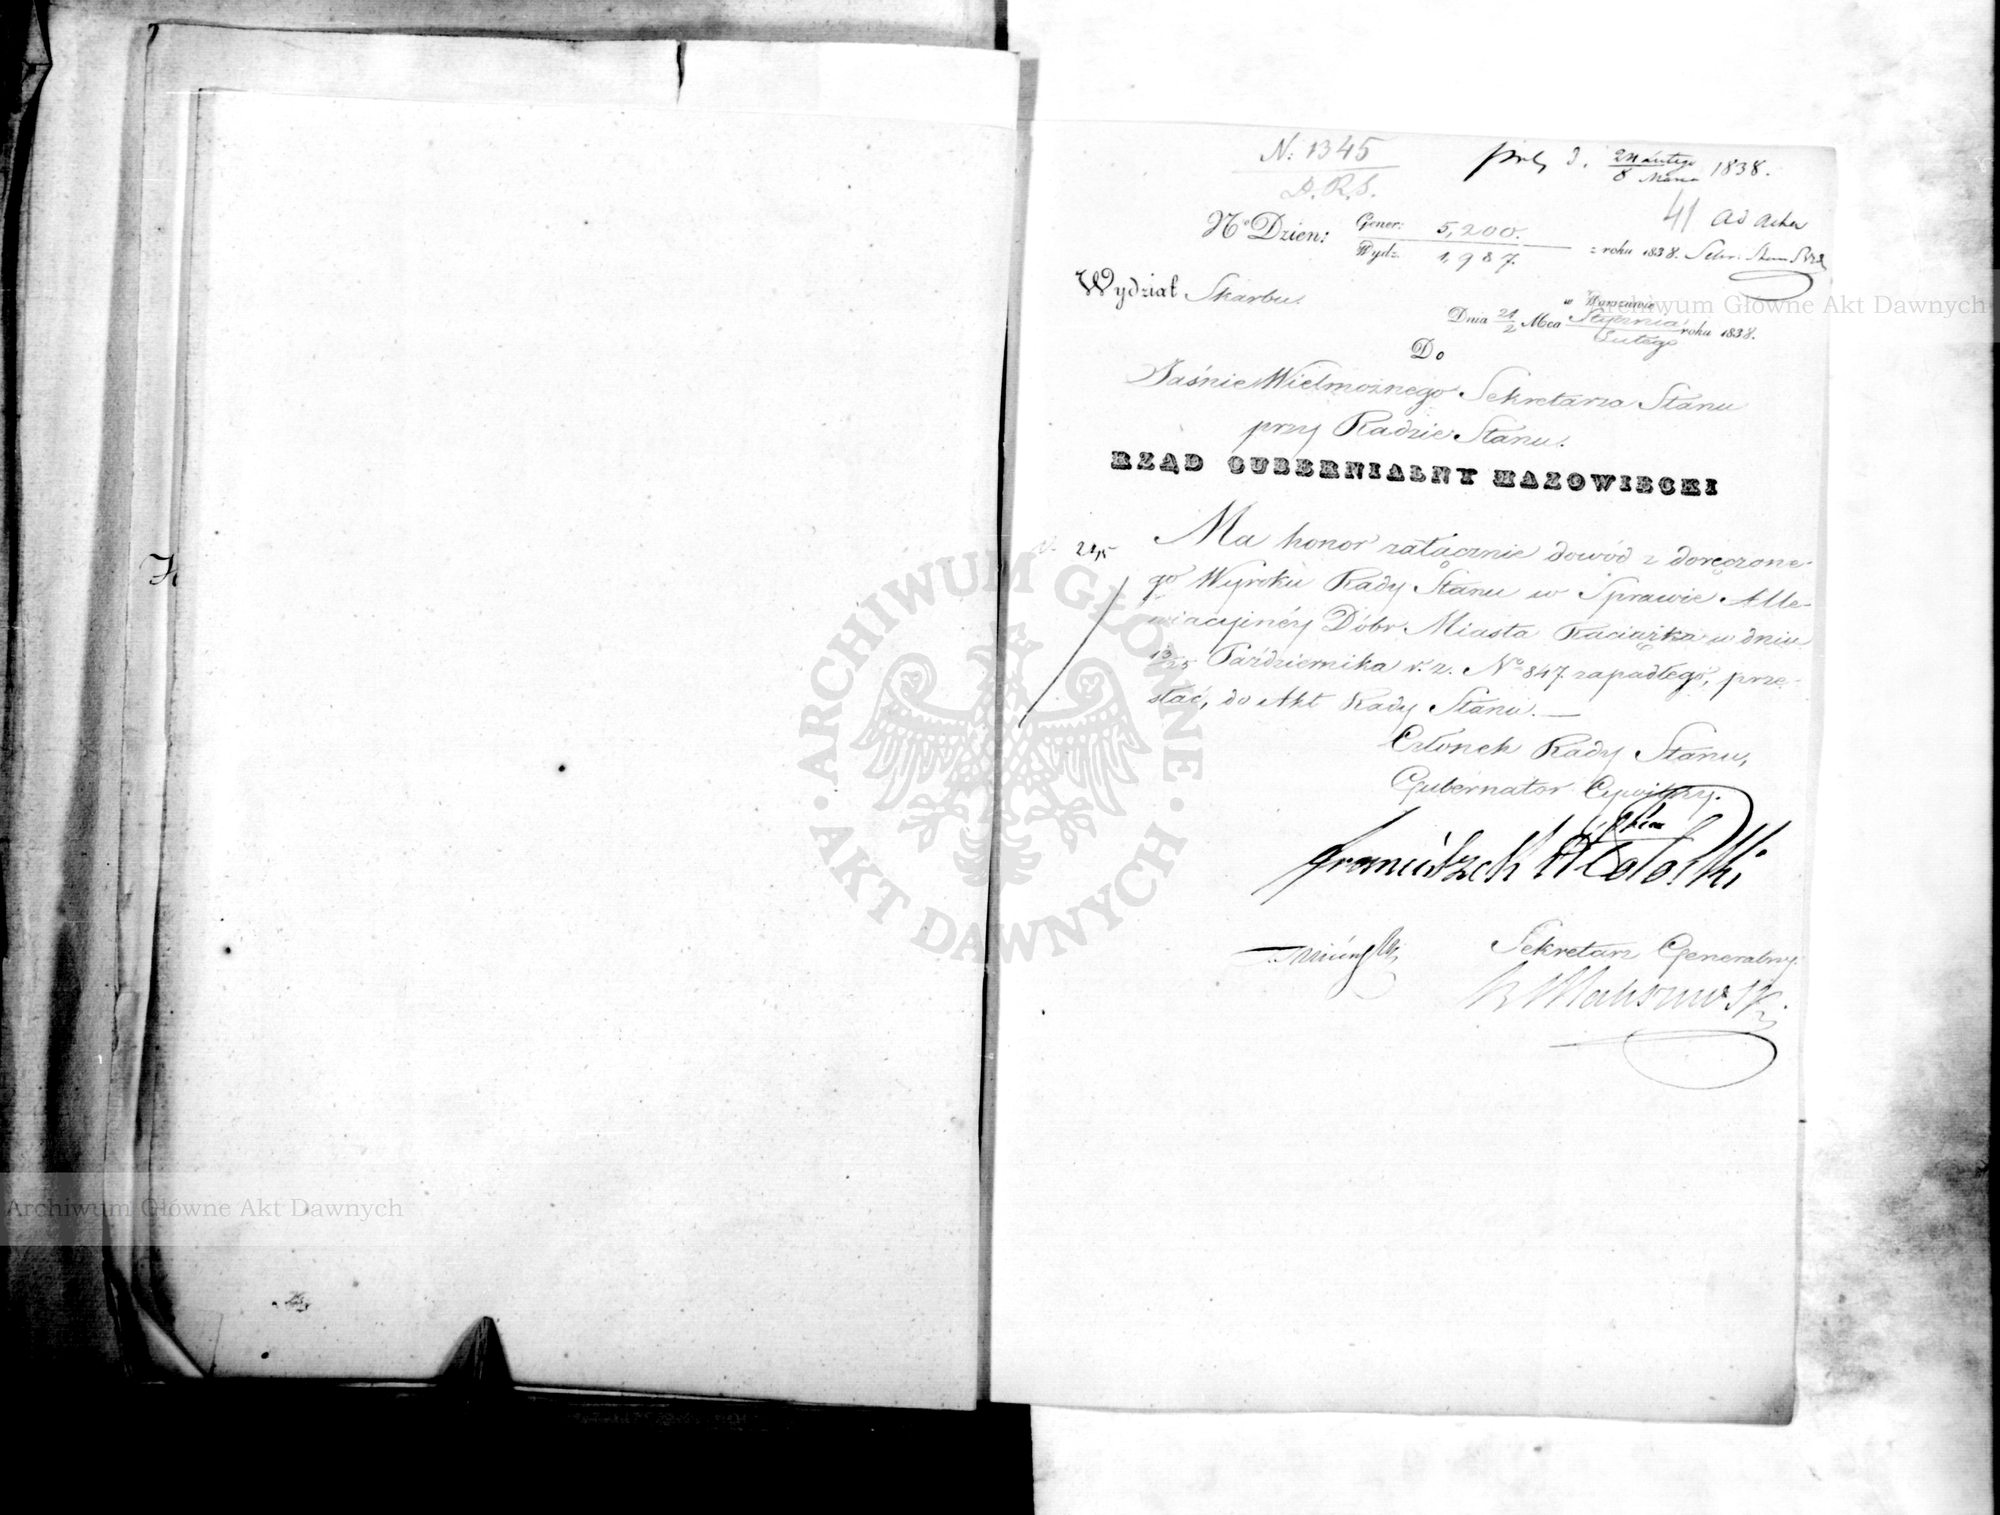 N: 1345
A. R. S.
d. 24 Lutego / 8 Marca 1838.
41 ad acta
No Dzien: Gener: 5,200.
Wydz. 1,987.
z roku 1838.
Wydział Skarbu.
w Warszawie
Dnia 21/2 Mca Stycznia/Lutego roku 1838.
Do
Jaśnie Wielmożnego Sekretarza Stanu
przy Radzie Stanu.
RZĄD GUBERNIALNY MAZOWIECKI
Ma honor załącznie dowód z doręczone-
go Wyroku Rady Stanu w Sprawie Alle-
wiacyinéy Dóbr Miasta Raciążka w dniu
13/25 Października r. z. No 847. zapadłego, prze-
słać, do Akt Rady Stanu.—
Członek Rady Stanu,
Gubernator Cywilny.
Franciszek Potocki
Sekretarz Generalny.
Archiwum Główne Akt Dawnych
Archiwum Główne Akt Dawnych
ARCHIWUM GŁÓWNE
AKT DAWNYCH